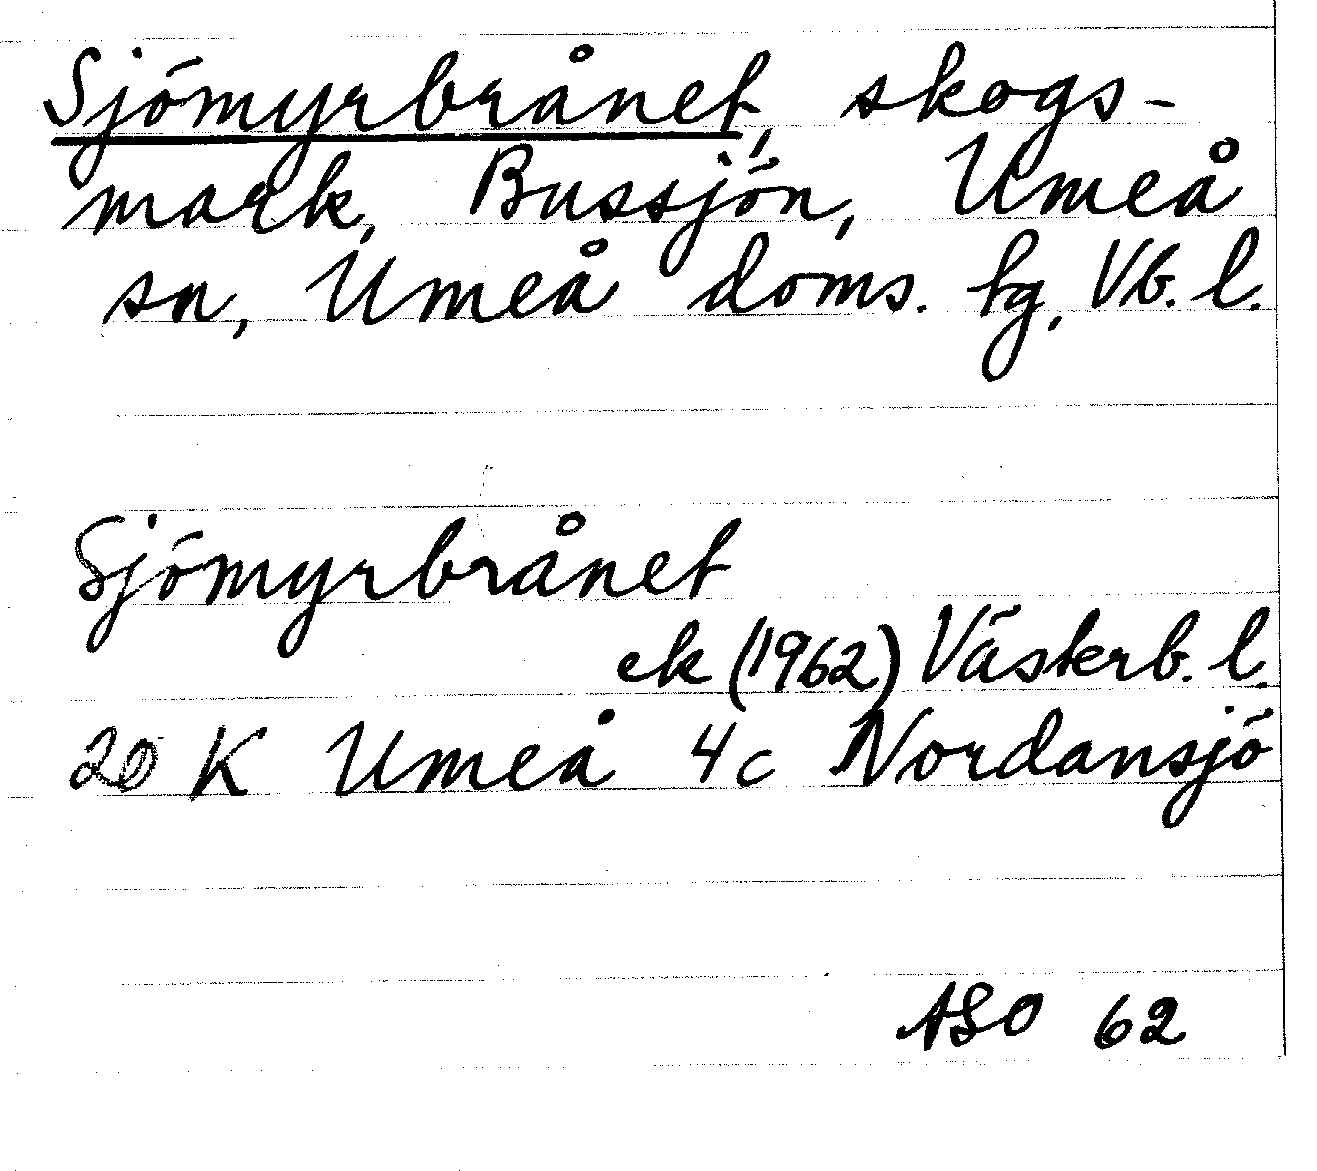 Sjömyrbrånet, skogs-
mark, Bussjön, Umeå
sn, Umeå doms. hg, Vb. l.
Sjömyrbrånet
ek (1962) Västerb. l.
20 K Umeå 4c Nordansjö
ASO 62